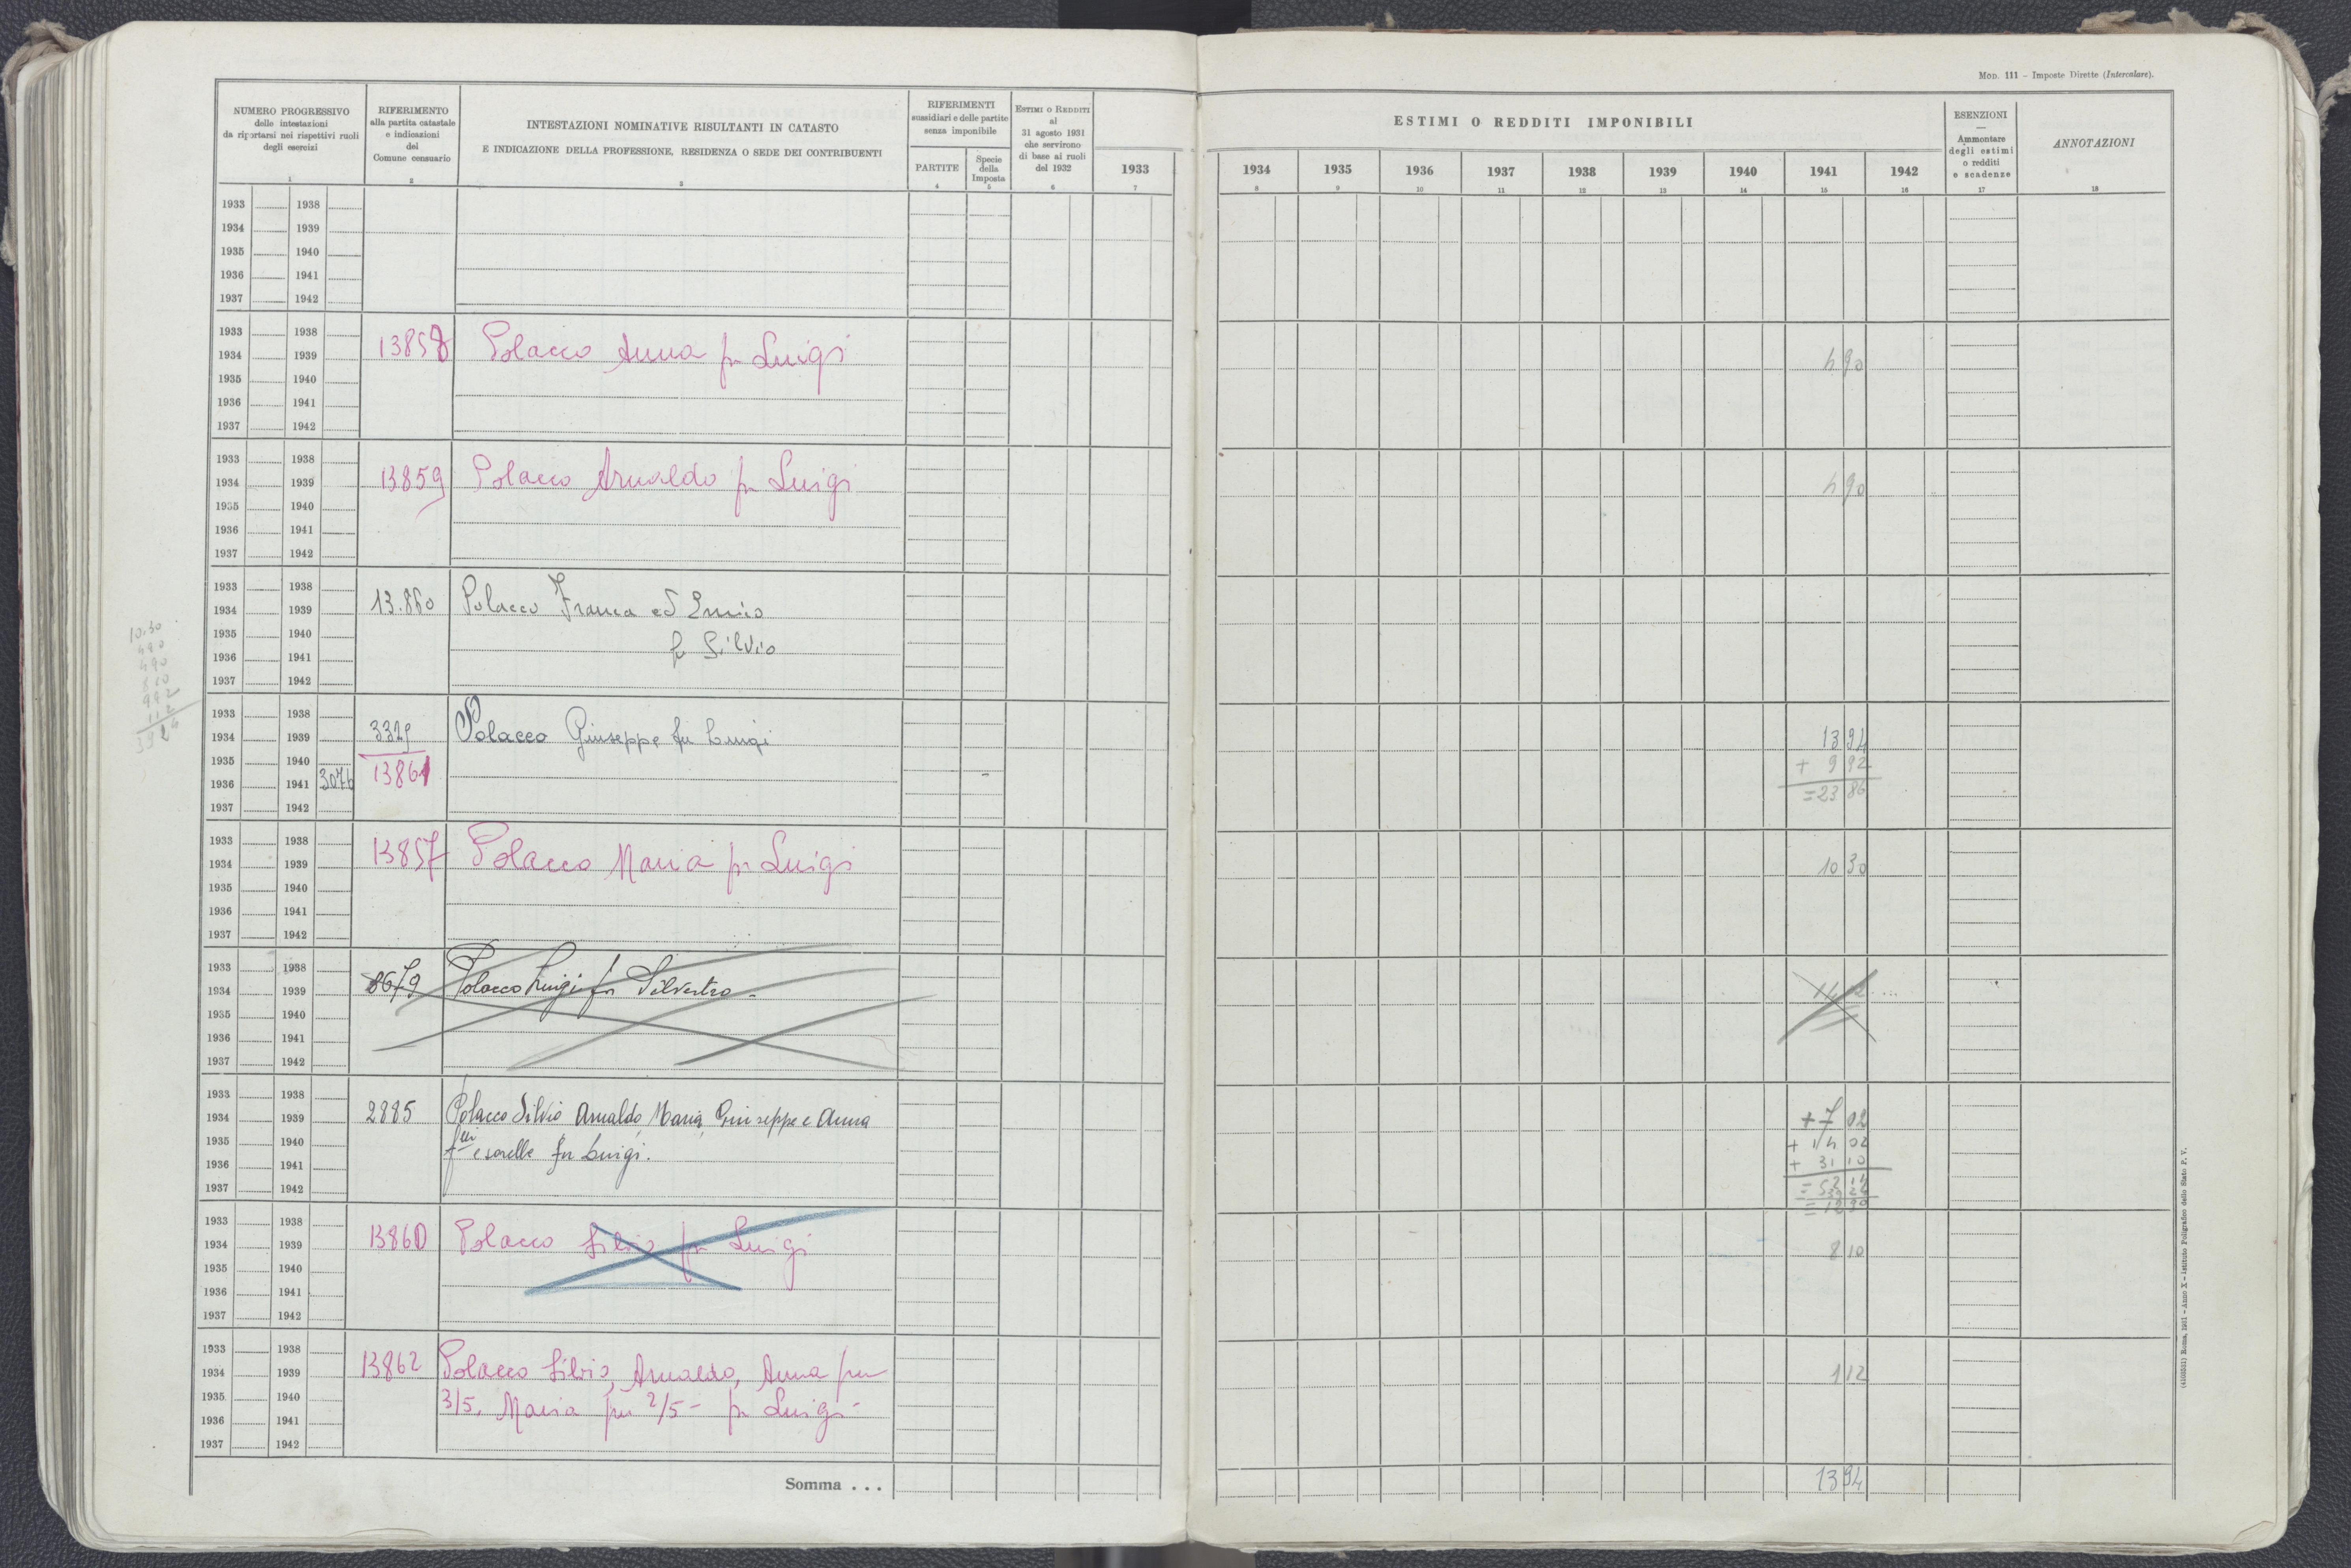 MOD. 111 – Imposte Dirette (Intercalare).
NUMERO PROGRESSIVO
delle intestazioni
da riportarsi nei rispettivi ruoli
degli esercizi
1
RIFERIMENTO
alla partita catastale
e indicazioni
del
Comune censuario
2
INTESTAZIONI NOMINATIVE RISULTANTI IN CATASTO
E INDICAZIONE DELLA PROFESSIONE, RESIDENZA O SEDE DEI CONTRIBUENTI
3
RIFERIMENTI
sussidiari e delle partite
senza imponibile
PARTITE
4
Specie
della
Imposta
5
ESTIMI O REDDITI
al
31 agosto 1931
che servirono
di base ai ruoli
del 1932
6
ESTIMI O REDDITI IMPONIBILI
1933 1934 1935 1936 1937 1938 1939 1940 1941 1942
7 8 9 10 11 12 13 14 15 16
ESENZIONI
—
Ammontare
degli estimi
o redditi
e scadenze
17
ANNOTAZIONI
18
1933 1938
1934 1939
1935 1940
1936 1941
1937 1942
1933 1938
1934 1939 13858 Polacco Anna fu Luigi 490
1935 1940
1936 1941
1937 1942
1933 1938
1934 1939 13859 Polacco Arnaldo fu Luigi 490
1935 1940
1936 1941
1937 1942
1933 1938
1934 1939 13.860 Polacco Franca ed Ennio
1935 1940
1936 1941 fu Silvio
1937 1942
10.30
490
490
810
992
112
3924
1933 1938
1934 1939 3329 Polacco Giuseppe fu Luigi 1394
1935 1940 13861 + 992
1936 1941 3076 = 2386
1937 1942
1933 1938
1934 1939 13857 Polacco Maria fu Luigi 1030
1935 1940
1936 1941
1937 1942
1933 1938
1934 1939 8679 Polacco Luigi fu Silvestro
1935 1940
1936 1941
1937 1942
1933 1938
1934 1939 2885 Polacco Silvio Arnaldo, Maria, Giuseppe e Anna + 702
1935 1940 flli e sorelle fu Luigi. + 1402
1936 1941 + 3110
1937 1942 = 5214
1933 1938
1934 1939 13860 Polacco Silvio fu Luigi 810
1935 1940
1936 1941
1937 1942
1933 1938
1934 1939 13862 Polacco Silvio, Arnaldo, Anna per 112
1935 1940 3/5, Maria per 2/5 – fu Luigi –
1936 1941
1937 1942
Somma . . . 1394
(4103531) Roma, 1931 – Anno X – Istituto Poligrafico dello Stato P. V.